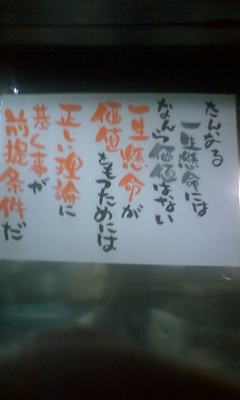 たんなる
一生懸命には
なんら価値はない
一生懸命が
価値をもつためには
正しい理論に
基く事が
前提条件だ